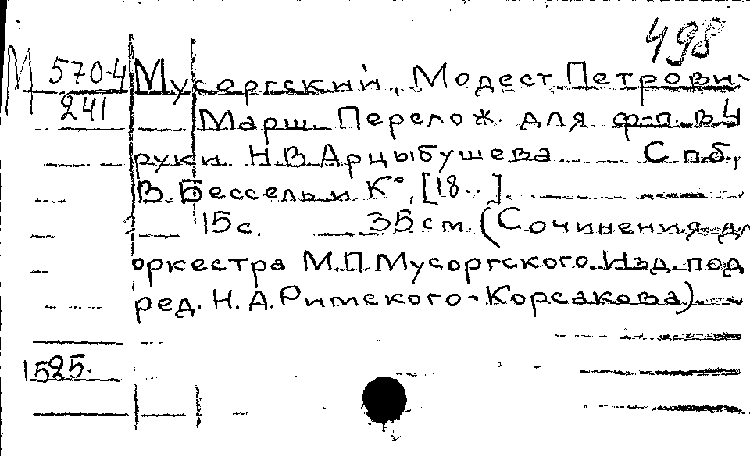 498
М 570-4 Мусоргский, Модест Петрови
241 Марш. Перелож. для ф-п. в 4
руки Н.В. Арцыбушева Спб,
В. Бессель и К°, [18..]
15 с. 35 см. (Сочинения дл
оркестра М.П. Мусоргского. Изд. под
ред. Н.А. Римского-Корсакова)
1525.